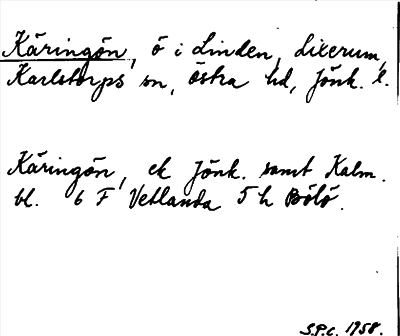 Käringön, ö i Linden, Lixerum,
Karlstorps sn, Östra hd, Jönk. l.
Käringön, ek Jönk. samt Kalm.
bl. 6 F Vetlanda 5 h Bölö.
S.P.C. 1958.